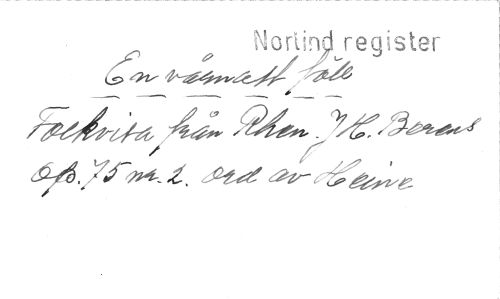 Norlind register
En vårnatt föll
Folkvisa från Rhen. J H. Berens
Op. 75 nr. 2. ord av Heine